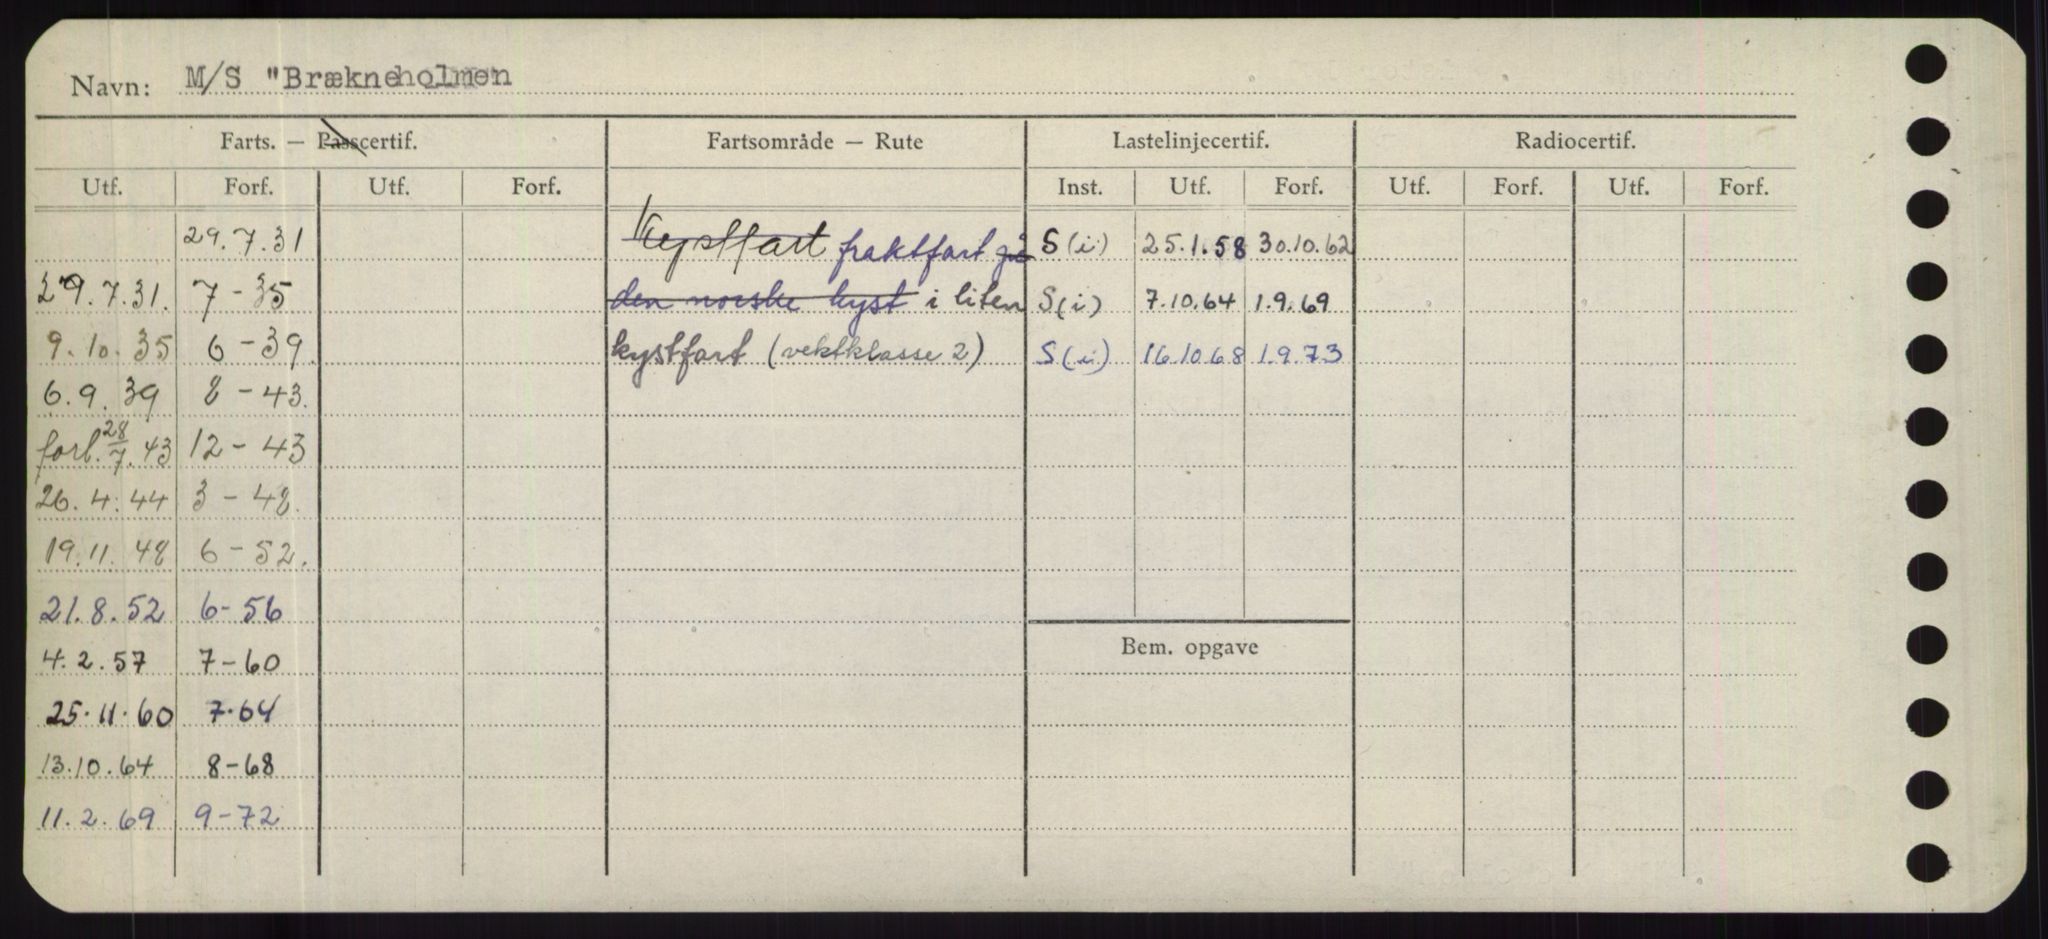 Navn: M/S "Brækneholmen
Farts. — Passcertif. Fartsområde — Rute Lastelinjecertif. Radiocertif.
Utf. Forf. Utf. Forf. Inst. Utf. Forf. Utf. Forf. Utf. Forf.
29.7.31 Kystfart fraktfart på S (i) 25.1.58 30.10.62
29.7.31. 7-35 den norske kyst i liten S(i) 7.10.64 1.9.69
9.10.35 6-39. kystfart (vektklasse 2) S(i) 16.10.68 1.9.73
6.9.39 8-43.
forl. 28/7.43 12-43
26.4.44 3-48.
19.11.48 6-52.
21.8.52 6-56
4.2.57 7-60
Bem. opgave
25.11.60 7.64
13.10.64 8-68
11.2.69 9-72